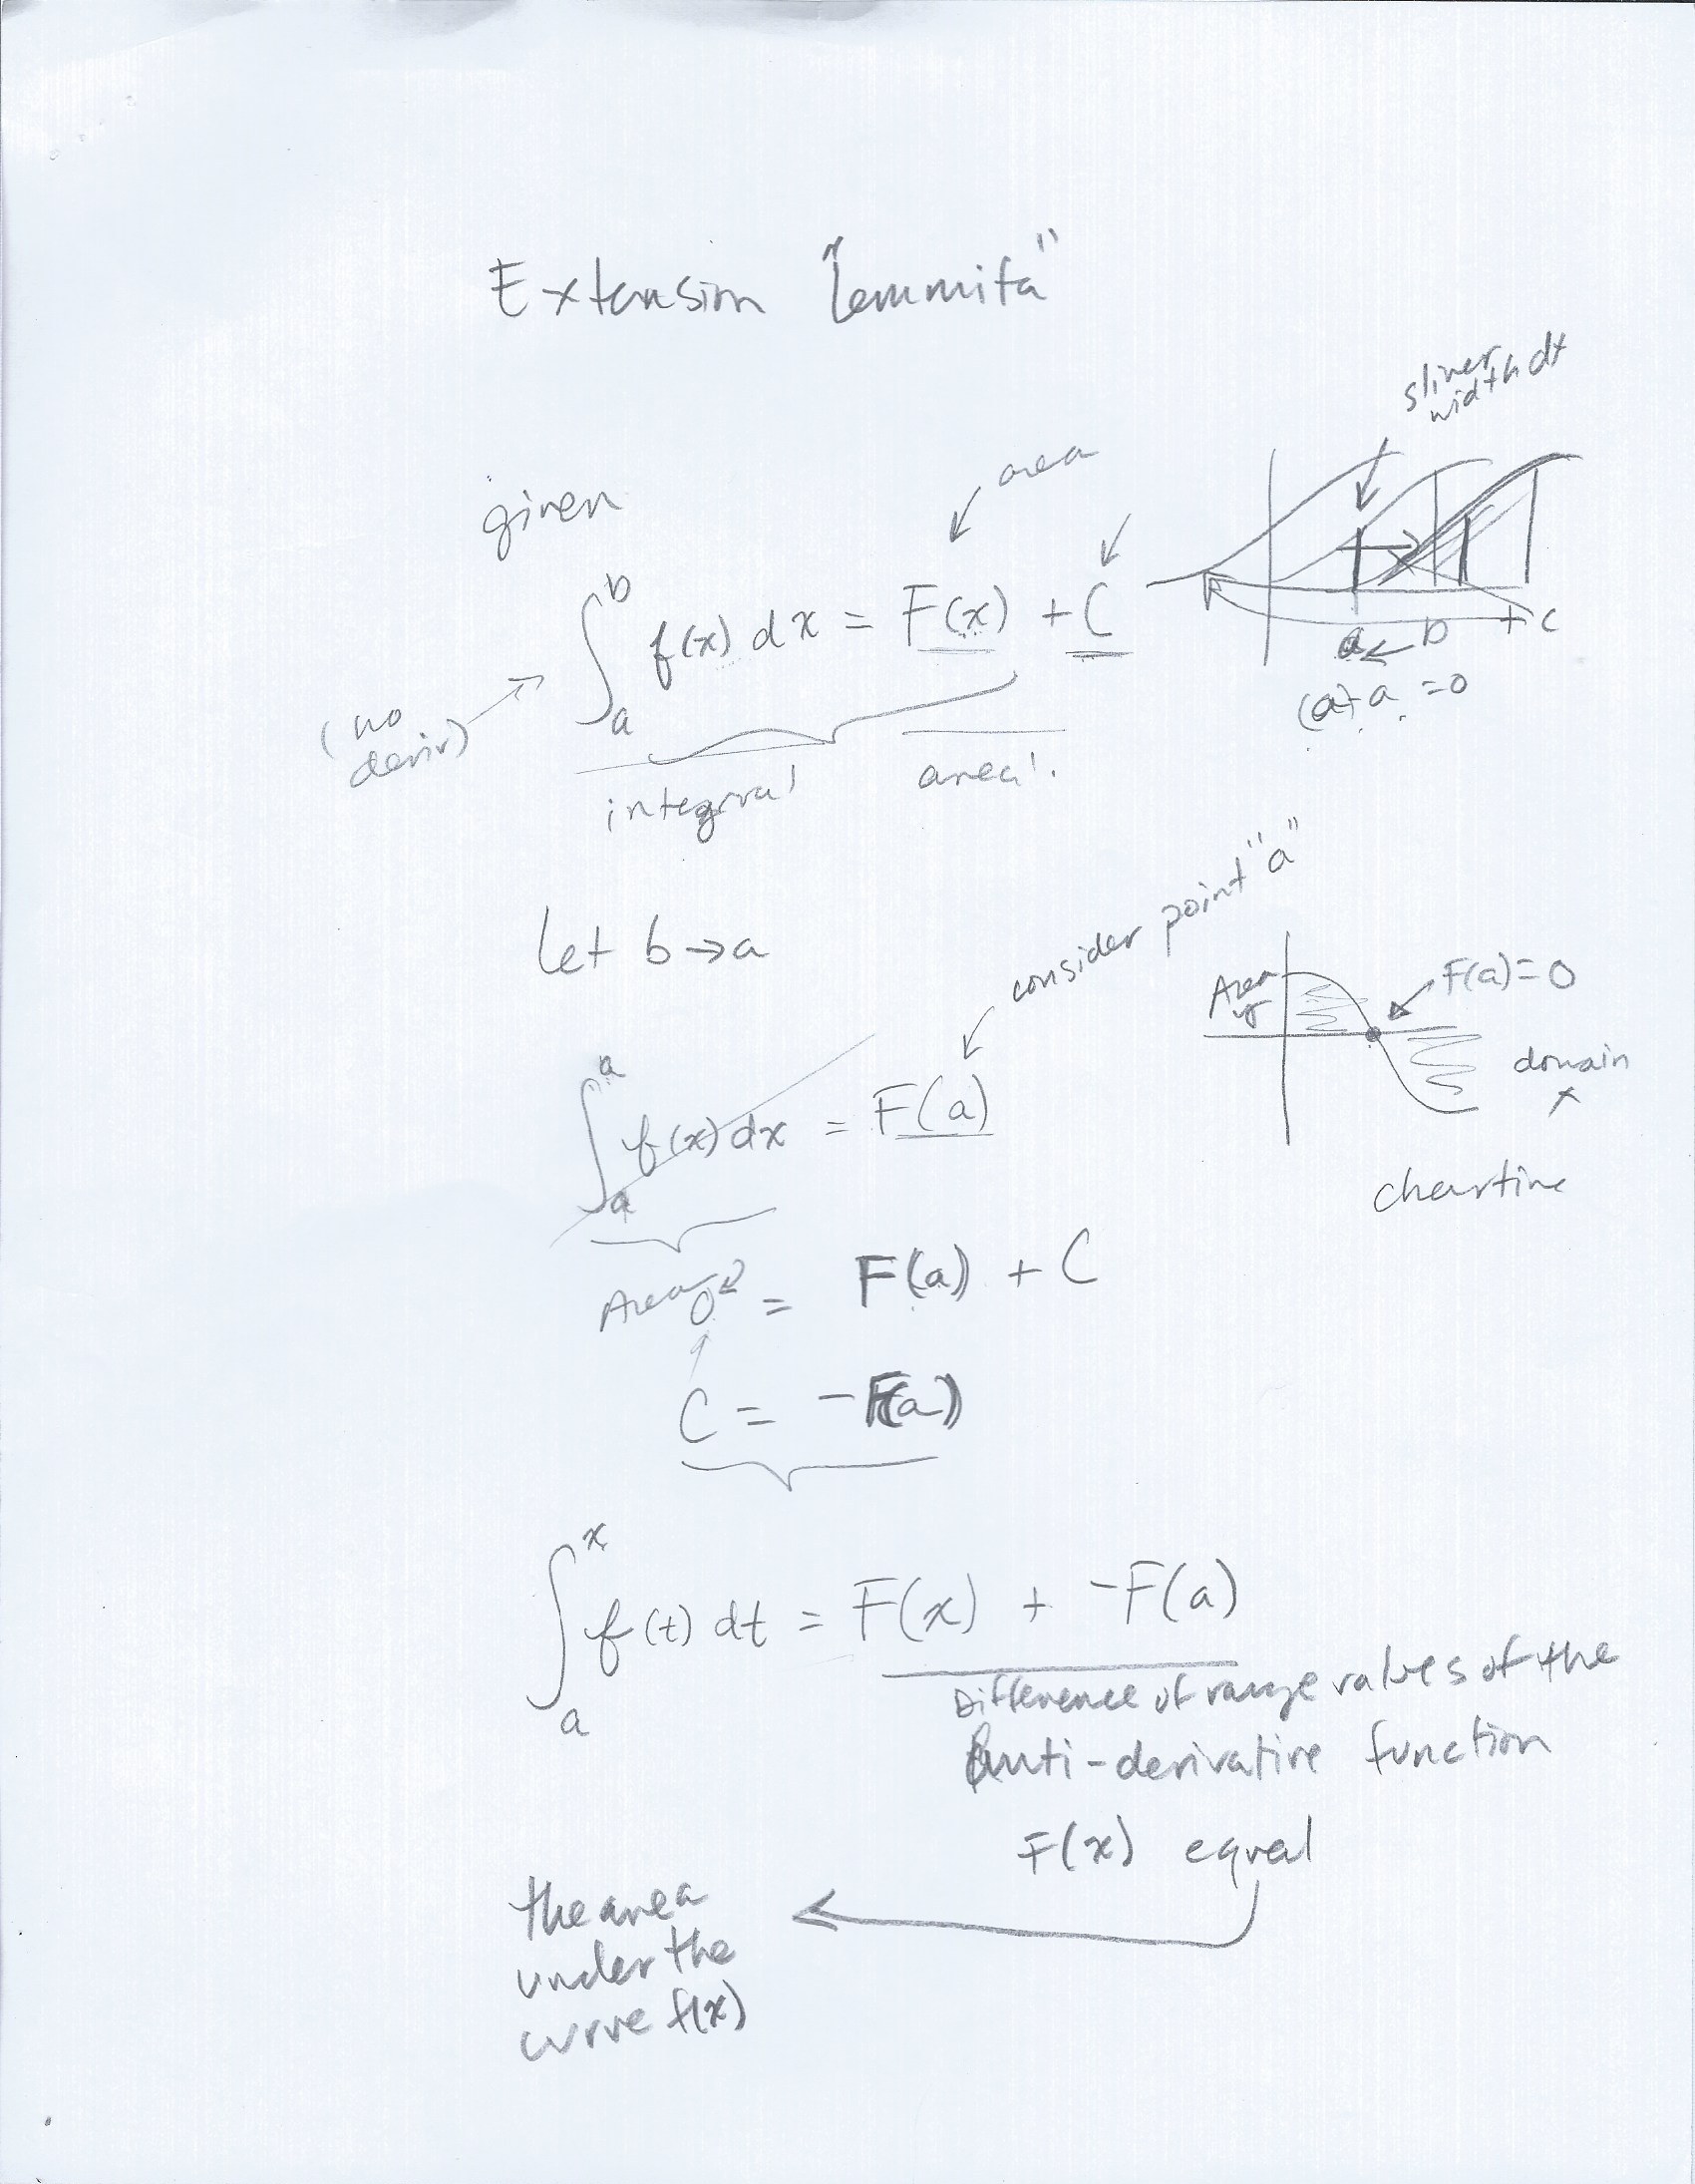 Extension "lemmita"
sliver
width dt
given
area
∫_a^b f(x) dx = F(x) + C
+ C
a ← b
(a)-a = 0
(no
deriv)
integral
area!
Let b→a
consider point "a"
Area
F(a)=0
domain
x
∫_a^a f(x) dx = F(a)
Area 0 = F(a) + C
C = -F(a)
∫_a^x f(t) dt = F(x) + -F(a)
Difference of range values of the
Anti-derivative function
F(x) equal
the area
under the
curve f(x)